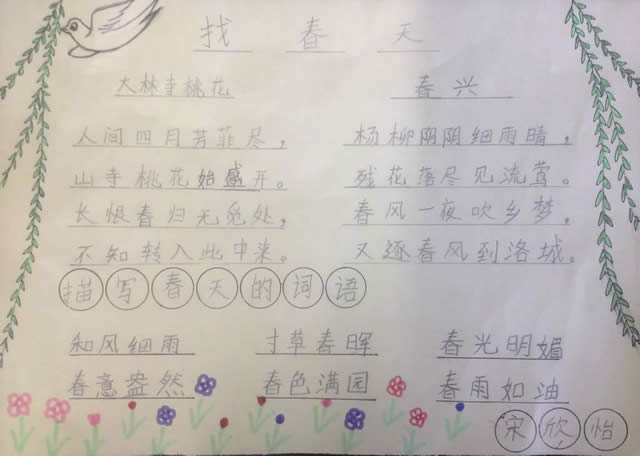 找春天
大林寺桃花
人间四月芳菲尽，
山寺桃花始盛开。
长恨春归无觅处，
不知转入此中来。
春兴
杨柳阴阴细雨晴，
残花落尽见流莺。
春风一夜吹乡梦，
又逐春风到洛城。
描写春天的词语
和风细雨 寸草春晖 春光明媚
春意盎然 春色满园 春雨如油
宋欣怡